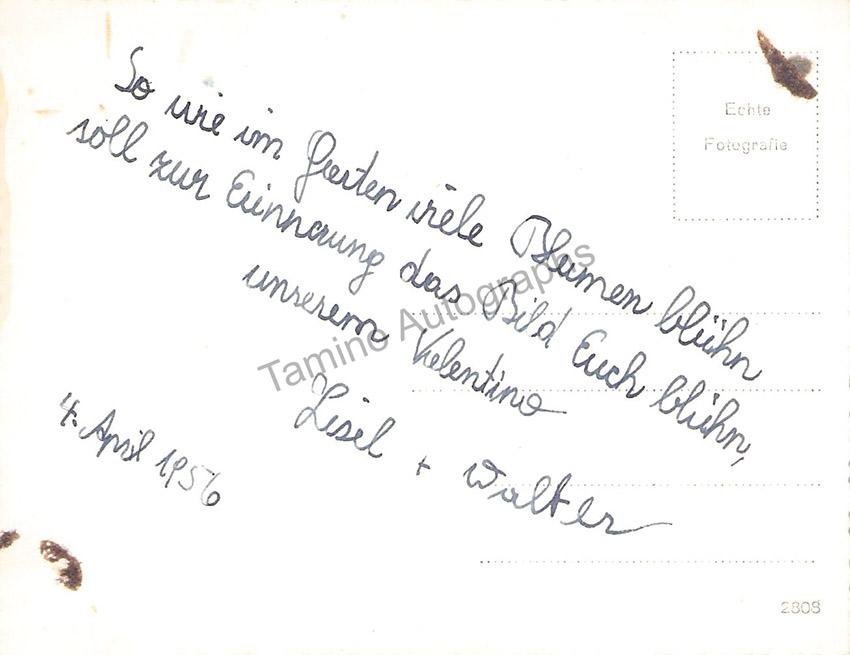 So wie im Garten viele Blumen blühn
soll zur Erinnerung das Bild Euch blühn,
unserem Valentino
Lisel + Walter
4. April 1956
Echte
Fotografie
Tamino Autographs
2808